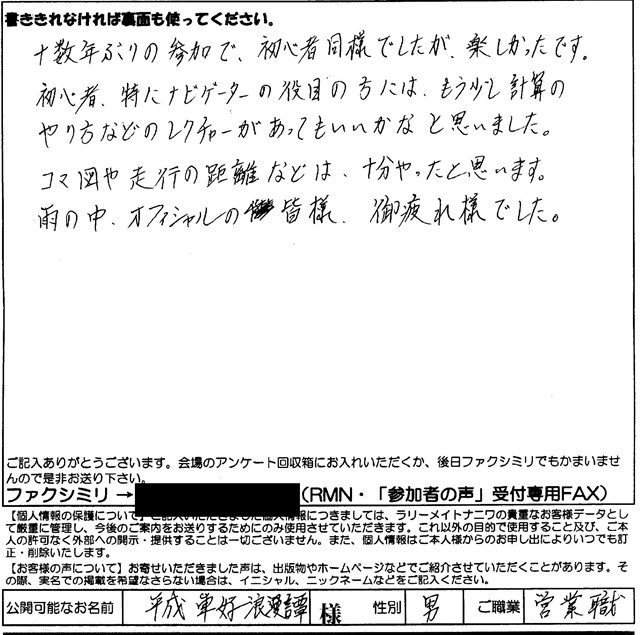 書ききれなければ裏面も使ってください。
十数年ぶりの参加で、初心者同様でしたが、楽しかったです。
初心者、特にナビゲーターの役目の方には、もう少し計算の
やり方などのレクチャーがあってもいいかなと思いました。
コマ図や走行の距離などは、十分やったと思います。
雨の中、オフィシャルの皆様、御疲れ様でした。
ご記入ありがとうございます。会場のアンケート回収箱にお入れいただくか、後日ファクシミリでもかまいませ
んので是非お送り下さい。
ファクシミリ → (RMN・「参加者の声」受付専用FAX)
【個人情報の保護について】ご記入いただきました個人情報につきましては、ラリーメイトナニワの貴重なお客様データとし
て厳重に管理し、今後のご案内をお送りするためにのみ使用させていただきます。これ以外の目的で使用すること及び、ご本
人の許可なく外部への開示・提供することは一切ございません。また、個人情報はご本人様からのお申し出によりいつでも訂
正・削除いたします。
【お客様の声について】お寄せいただきました声は、出版物やホームページなどでご紹介させていただくことがあります。そ
の際、実名での掲載を希望なさらない場合は、イニシャル、ニックネームなどをご記入ください。
公開可能なお名前 平成車好浪漫譚 様 性別 男 ご職業 営業職